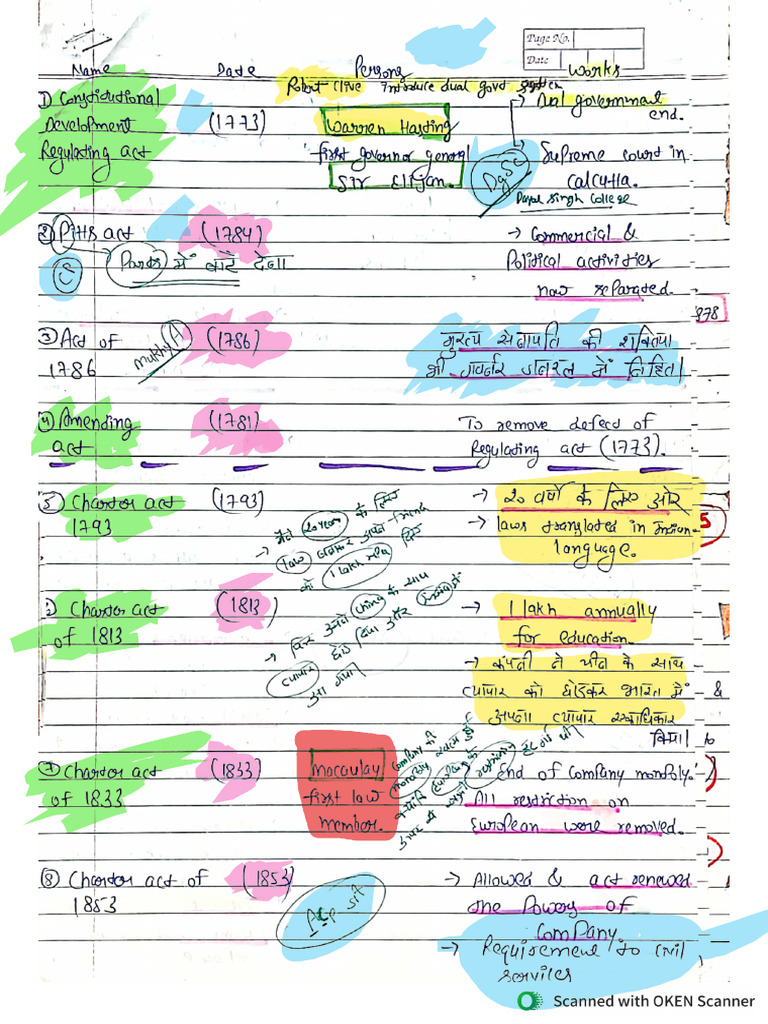 Page No.
Date
Name Date Persons Works
Robert Clive introduce dual govt system
1) Constitutional
Development
Regulating act
(1773)
Warren Hasting
first governor general
Sir Elijan.
→ Dual government
end.
→ Supreme court in
Calcutta.
DgSc
Dayal Singh College
2) Pitts act (1784)
Parts में बाट देना
→ Commercial &
Political activities
now separated.
378
3) Act of
1786
(1786)
मुख्य सेनापति की शक्तियां
भी गवर्नर जनरल में निहित।
4) Amending
act
(1781)
To remove defect of
Regulating act (1773).
5) Charter act
1793
(1793)
→ 20 वर्षो के लिए और
→ laws translated in Indian
language.
5
→ मैने 20 year के लिए
law बनाकर अपने friend
को 1 lakh रुपया दिए
Charter act
of 1813
(1813)
→ 1 lakh annually
for education.
→ कंपनी ने चीन के साथ
व्यापार को छोड़कर भारत में
अपना व्यापार एकाधिकार
किया।
→ फिर उसने China के साथ
व्यापार छोड़ दिया और
आ गया।
&
to
7) Charter act
of 1833
(1833)
Macaulay
first law
member.
end of company monopoly.
All restriction on
European were removed.
8) Charter act of
1853
(1853)
→ Allowed & act renewed
the Powers of
Company
→ Requirement to civil
services
Scanned with OKEN Scanner